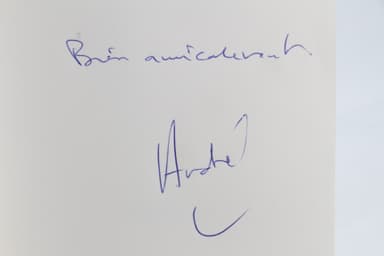 Bien amicalement
André